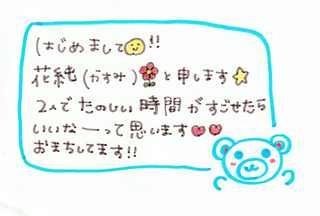 はじめまして!!
花純(かすみ)と申します
2人でたのしい時間がすごせたら
いいなーって思います
おまちしてます!!